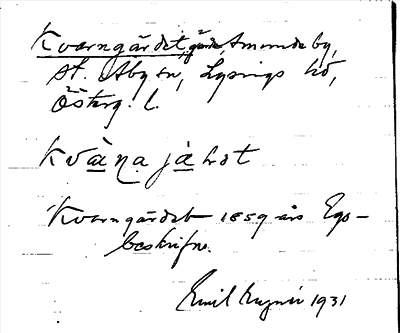 Kvarngärdet, gärde, Amundeby,
St. Åby sn, Lysings hd,
Österg. l.
Kvàṇa jàḷdt
Kvarngärdet 1859 års Ego-
beskrifn.
Emil 1931